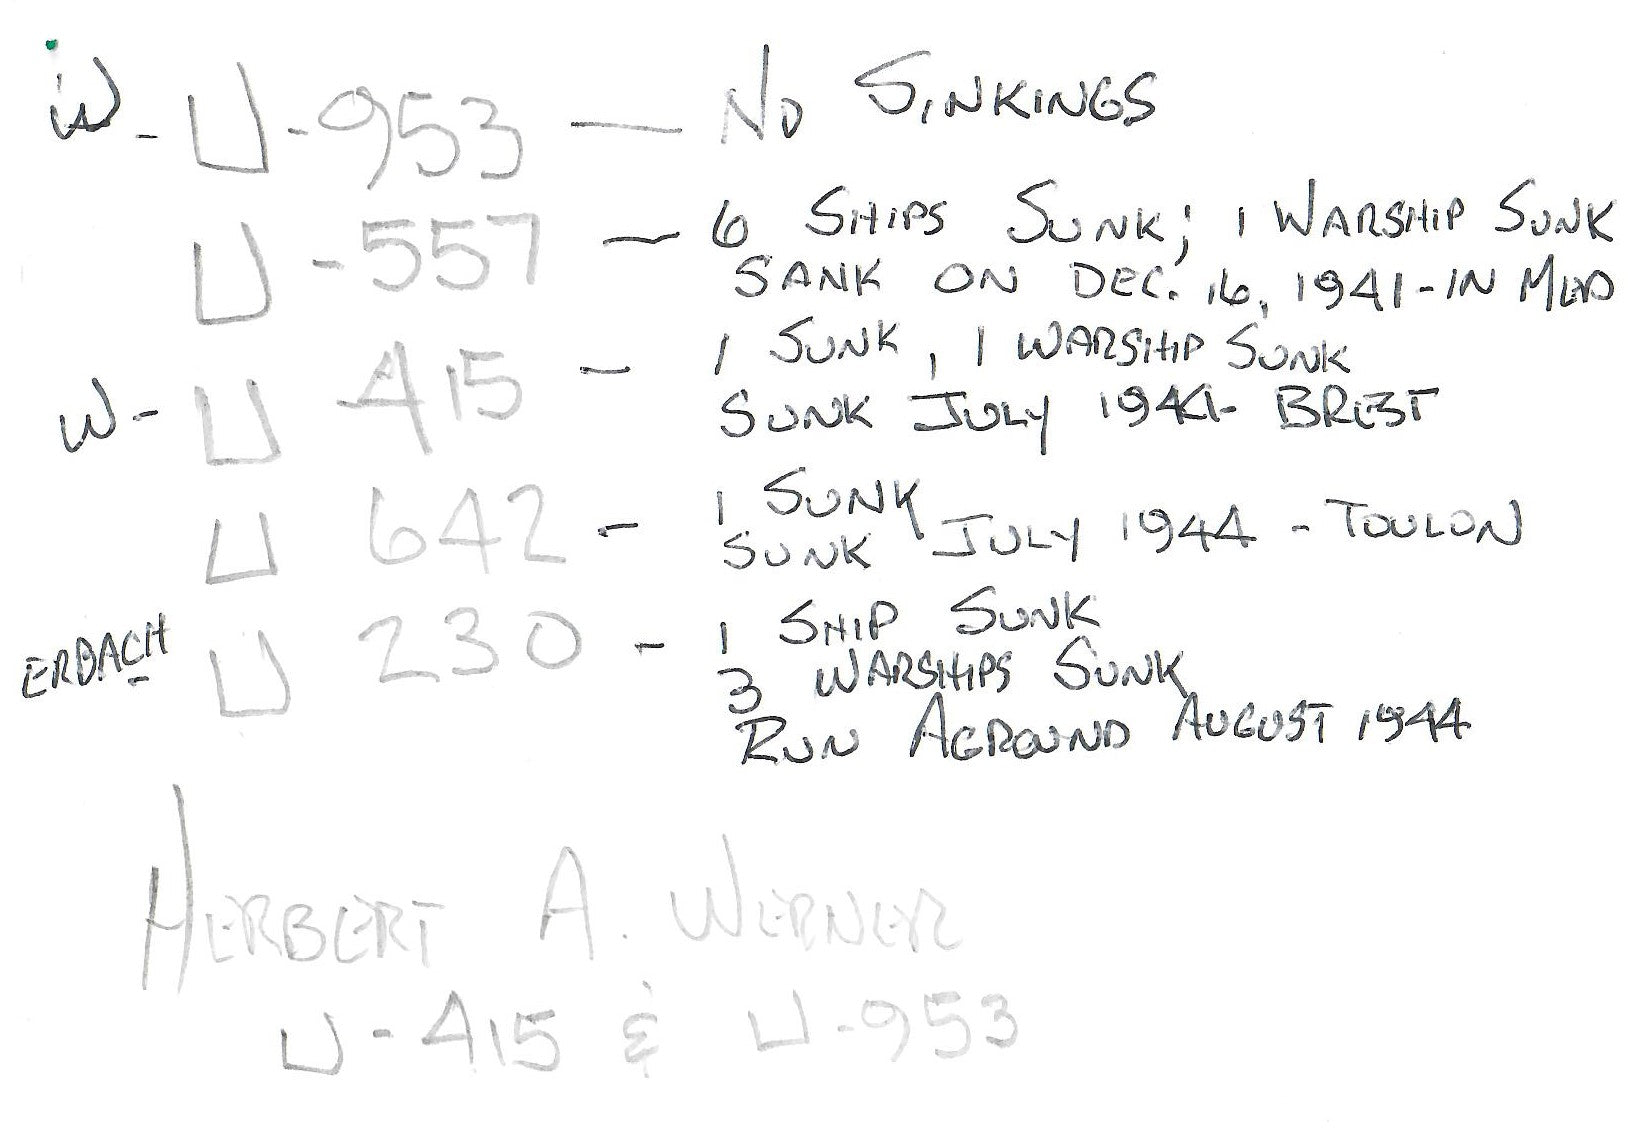 W - U - 953 — No SINKINGS
U - 557 — 6 SHIPS SUNK; 1 WARSHIP SUNK
SANK ON DEC. 16, 1941 - IN MED
1 SUNK, 1 WARSHIP SUNK
W - U 415 -
SUNK JULY 1944 - BREST
1 SUNK
U 642 - SUNK JULY 1944 - TOULON
ERBACH U 230 - 1 SHIP SUNK
3 WARSHIPS SUNK
RUN AGROUND AUGUST 1944
HERBERT A. WERNER
U - 415 & U - 953